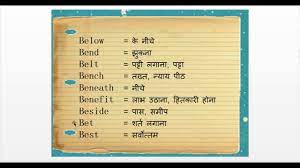 Below = के नीचे
Bend = झुकना
Belt = पट्टी लगाना, पट्टा
Bench = तख़्त, न्याय पीठ
Beneath = नीचे
Benefit = लाभ उठाना, हितकारी होना
Beside = पास, समीप
Bet = शर्त लगाना
Best = सर्वोत्तम